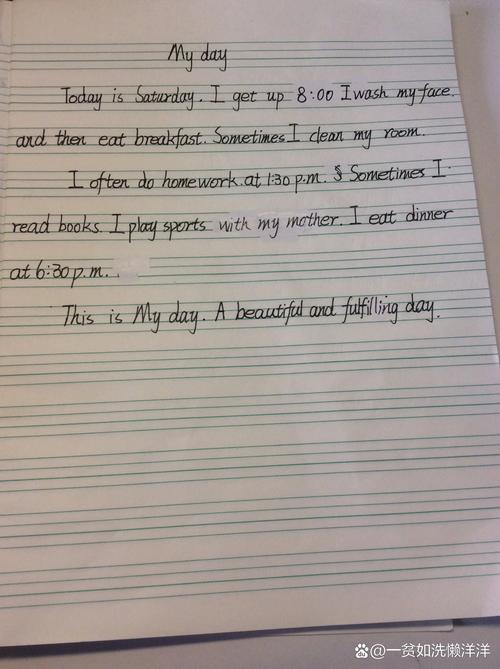 My day
Today is Saturday. I get up 8:00 I wash my face.
and then eat breakfast. Sometimes I clean my room.
I often do homework. at 1:30 p.m. S Sometimes I
read books. I play sports with my mother. I eat dinner
at 6:30 p.m.
This is My day. A beautiful and fulfilling day.
@一贫如洗懒洋洋